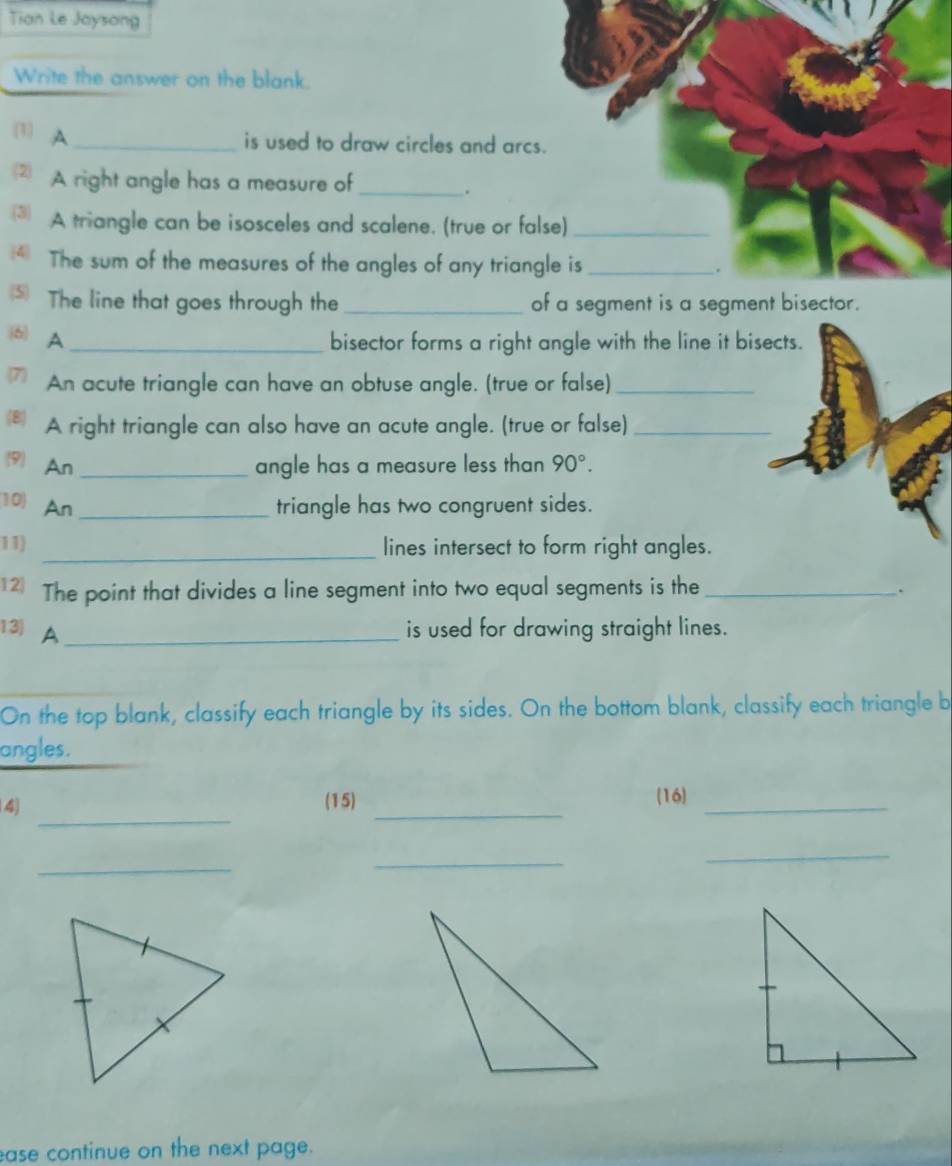 Tian Le Jaysong
Write the answer on the blank.
(1) A ____________ is used to draw circles and arcs.
(2) A right angle has a measure of ____________.
(3) A triangle can be isosceles and scalene. (true or false) ____________
(4) The sum of the measures of the angles of any triangle is ____________.
(5) The line that goes through the ____________ of a segment is a segment bisector.
(6) A ____________ bisector forms a right angle with the line it bisects.
(7) An acute triangle can have an obtuse angle. (true or false) ____________
(8) A right triangle can also have an acute angle. (true or false) ____________
(9) An ____________ angle has a measure less than 90°.
10) An ____________ triangle has two congruent sides.
11) ____________ lines intersect to form right angles.
12) The point that divides a line segment into two equal segments is the ____________.
13) A ____________ is used for drawing straight lines.
On the top blank, classify each triangle by its sides. On the bottom blank, classify each triangle b
angles.
4) ____________ (15) ____________ (16) ____________
ease continue on the next page.